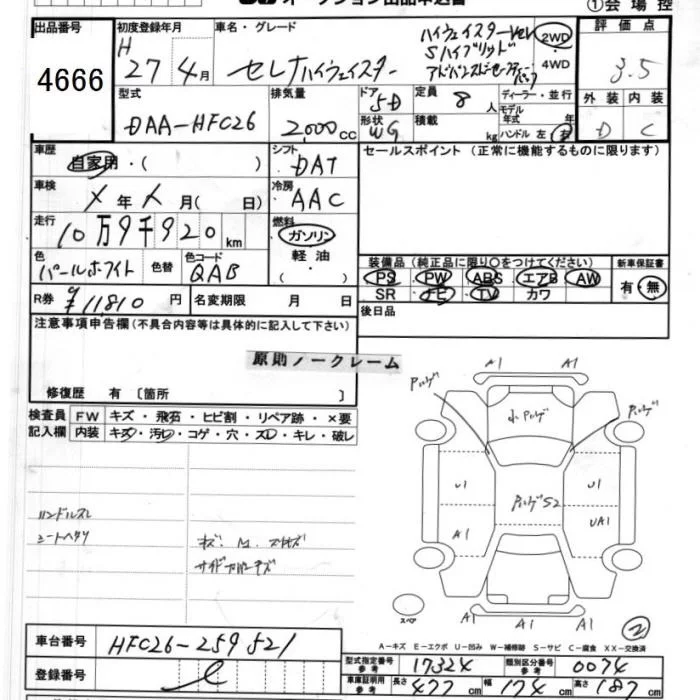 オークション出品申込書
①会場控
出品番号
4666
初度登録年月
H 27年 4月
車名・グレード
セレナハイウェイスター
ハイウェイスターVセレ
Sハイブリッド
アドバンスドセーフティーパック
2WD
4WD
評価点
3.5
型式
DAA-HFC26
排気量
2,000cc
ドア
5D
形状
WG
定員 8人
積載 kg
ディーラー・並行
モデル年式 年
ハンドル 左・右
外装 内装
D C
車歴
自家用・( )
シフト
DAT
セールスポイント (正常に機能するものに限ります)
車検
X年 X月( 日)
冷房
AAC
走行
10万9千920km
燃料
ガソリン
軽油
・
( )
色
パールホワイト
色替
色コード
QAB
装備品 (純正品に限り〇をつけてください)
PS PW ABS エアB AW
SR ナビ TV カワ
新車保証書
有・無
R券 ¥11,810円
名変期限 月 日
後日品
注意事項申告欄(不具合内容等は具体的に記入して下さい)
原則ノークレーム
修復歴 有 〔箇所 〕
検査員記入欄
FW キズ・飛石・ヒビ割・リペア跡・×要
内装 キズ・汚レ・コゲ・穴・スレ・キレ・破レ
ハンドルスレ
シートヘタリ
A1 A1
U1 U1
A1 UA1
スペア
A1 A1
②
A-キズ E-エクボ U-凹み W-補修跡 S-サビ C-腐食 XX-交換済
車台番号
HFC26-259521
登録番号
型式指定番号参考 17324
類別区分番号参考 0074
車庫証明用参考 長さ 477cm 幅 174cm 高さ 187cm